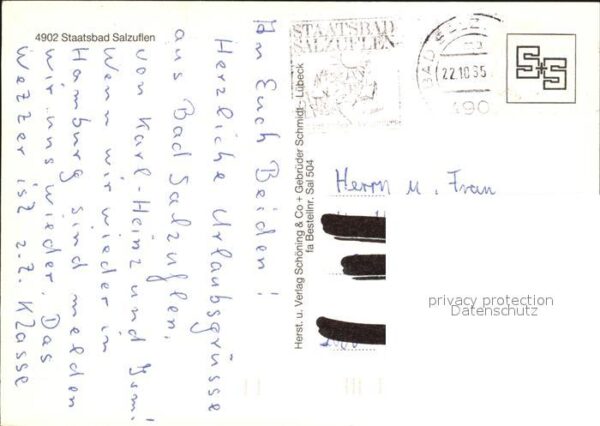 4902 Staatsbad Salzuflen
An Euch Beiden!
Herzliche Urlaubsgrüsse
aus Bad Salzuflen,
von Karl-Heinz und
Wenn wir wieder in
Hamburg sind melden
wir uns wieder. Das
Wetter ist z.Z. Klasse
Herst. u. Verlag Schöning & Co + Gebrüder Schmidt - Lübeck
fa Bestellnr. Sal 504
STAATSBAD
SALZUFLEN
BAD SALZ
22.10.85
490
S+S
Herrn u. Frau
privacy protection
Datenschutz